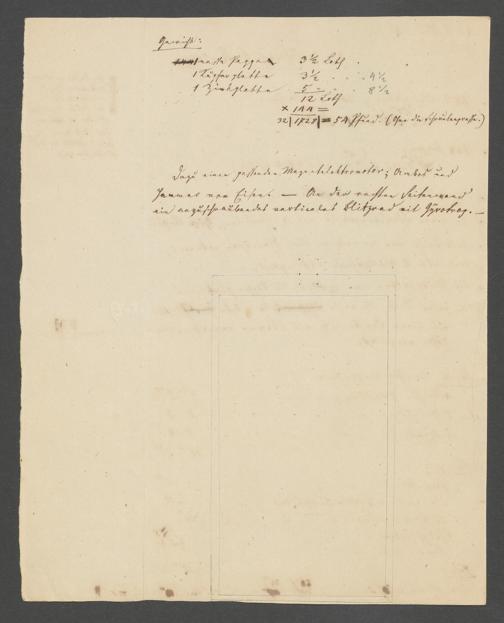 Gewicht:
nasse Pappe 3 1/2 Loth
1 Kupferplatte 3 1/2 . . . 4 1/2
1 Zinkplatte 5 - . . 8 1/2
12 Loth
× 144 =
32 | 1728 | = 54 Pfund. (Ohne die
Dazu einen passenden Magnetelektromotor; Ambos und
Hammer von Eisen — An der rechten Seitenwand
ein anzuschraubendes vertikales Blitzrad mit Gyrotrop. —